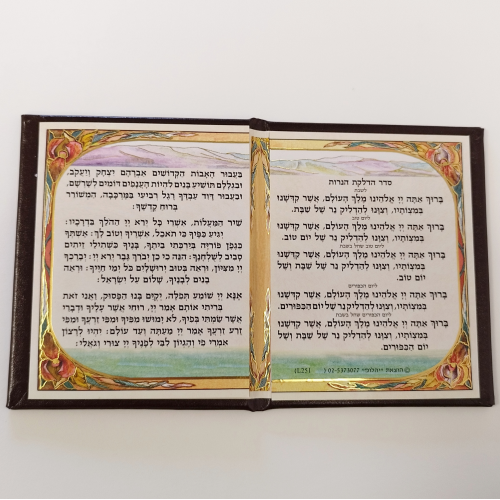 סדר הדלקת הנרות
לשבת
בָּרוּךְ אַתָּה יְיָ אֱלֹהֵינוּ מֶלֶךְ הָעוֹלָם, אֲשֶׁר קִדְּשָׁנוּ
בְּמִצְוֹתָיו, וְצִוָּנוּ לְהַדְלִיק נֵר שֶׁל שַׁבָּת.
ליום טוב
בָּרוּךְ אַתָּה יְיָ אֱלֹהֵינוּ מֶלֶךְ הָעוֹלָם, אֲשֶׁר קִדְּשָׁנוּ
בְּמִצְוֹתָיו, וְצִוָּנוּ לְהַדְלִיק נֵר שֶׁל יוֹם טוֹב.
ליום טוב שחל בשבת
בָּרוּךְ אַתָּה יְיָ אֱלֹהֵינוּ מֶלֶךְ הָעוֹלָם, אֲשֶׁר קִדְּשָׁנוּ
בְּמִצְוֹתָיו, וְצִוָּנוּ לְהַדְלִיק נֵר שֶׁל שַׁבָּת וְשֶׁל
יוֹם טוֹב.
ליום הכיפורים
בָּרוּךְ אַתָּה יְיָ אֱלֹהֵינוּ מֶלֶךְ הָעוֹלָם, אֲשֶׁר קִדְּשָׁנוּ
בְּמִצְוֹתָיו, וְצִוָּנוּ לְהַדְלִיק נֵר שֶׁל יוֹם הַכִּפּוּרִים.
ליום הכיפורים שחל בשבת
בָּרוּךְ אַתָּה יְיָ אֱלֹהֵינוּ מֶלֶךְ הָעוֹלָם, אֲשֶׁר קִדְּשָׁנוּ
בְּמִצְוֹתָיו, וְצִוָּנוּ לְהַדְלִיק נֵר שֶׁל שַׁבָּת וְשֶׁל
יוֹם הַכִּפּוּרִים.
© הוצאת 02-5373077 (L25)
בַּעֲבוּר הָאָבוֹת הַקְּדוֹשִׁים אַבְרָהָם יִצְחָק וְיַעֲקֹב,
וּבִגְלָלָם תּוֹשִׁיעַ בָּנִים לִהְיוֹת הָעֲנָפִים דּוֹמִים לְשָׁרְשָׁם,
וּבַעֲבוּר דָּוִד עַבְדֶּךָ רֶגֶל רְבִיעִי בַּמֶּרְכָּבָה, הַמְשׁוֹרֵר
בְּרוּחַ קָדְשֶׁךָ:
שִׁיר הַמַּעֲלוֹת, אַשְׁרֵי כָּל יְרֵא יְיָ הַהֹלֵךְ בִּדְרָכָיו:
יְגִיעַ כַּפֶּיךָ כִּי תֹאכֵל, אַשְׁרֶיךָ וְטוֹב לָךְ: אֶשְׁתְּךָ
כְּגֶפֶן פּוֹרִיָּה בְּיַרְכְּתֵי בֵיתֶךָ, בָּנֶיךָ כִּשְׁתִלֵי זֵיתִים
סָבִיב לְשֻׁלְחָנֶךָ: הִנֵּה כִי כֵן יְבֹרַךְ גָּבֶר יְרֵא יְיָ: יְבָרֶכְךָ
יְיָ מִצִּיּוֹן, וּרְאֵה בְּטוּב יְרוּשָׁלָיִם כֹּל יְמֵי חַיֶּיךָ: וּרְאֵה
בָנִים לְבָנֶיךָ, שָׁלוֹם עַל יִשְׂרָאֵל:
אָנָּא יְיָ שׁוֹמֵעַ תְּפִלָּה, יְקֻיַּם בָּנוּ הַפָּסוּק, וַאֲנִי זֹאת
בְּרִיתִי אוֹתָם אָמַר יְיָ, רוּחִי אֲשֶׁר עָלֶיךָ וּדְבָרַי
אֲשֶׁר שַׂמְתִּי בְּפִיךָ, לֹא יָמוּשׁוּ מִפִּיךָ וּמִפִּי זַרְעֲךָ וּמִפִּי
זֶרַע זַרְעֲךָ אָמַר יְיָ מֵעַתָּה וְעַד עוֹלָם: יִהְיוּ לְרָצוֹן
אִמְרֵי פִי וְהֶגְיוֹן לִבִּי לְפָנֶיךָ יְיָ צוּרִי וְגֹאֲלִי: